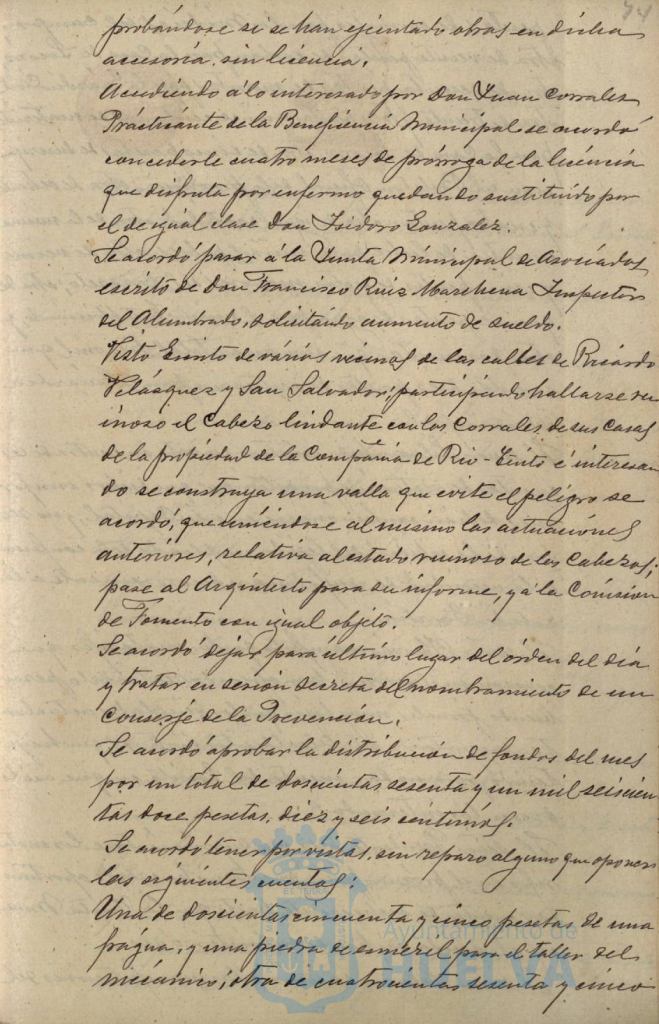 probándose si se han ejecutado obras en dicha
accesoría, sin licencia.
Accediendo á lo interesado por Don Juan Corrales
Practicante de la Beneficencia Municipal se acordó
concederle cuatro meses de prórroga de la licencia
que disfruta por enfermo quedando sustituido por
el de igual clase Don Isidoro Gonzalez.
Se acordó pasar á la Junta Municipal de Asociados
escrito de Don Francisco Ruiz Marchena Inspector
del Alumbrado, solicitando aumento de sueldo.
Visto Escrito de varios vecinos de las calles de Ricardo
Velásquez y San Salvador, participando hallarse ru
inoso el Cabezo lindante con los Corrales de sus casas
de la propiedad de la Compañia de Rio-Tinto é interesan
do se construya una valla que evite el peligro se
acordó, que uniéndose al mismo las actuaciones
anteriores, relativa al estado ruinoso de los Cabezos,
pase al Arquitecto para su informe, y á la Comision
de Fomento con igual objeto.
Se acordó dejar para último lugar del órden del dia
y tratar en sesion secreta del nombramiento de un
Conserje de la Prevención.
Se acordó aprobar la distribución de fondos del mes
por un total de doscientas sesenta y un mil seiscien
tas doce pesetas, diez y seis centimos.
Se acordó tener por vistas, sin reparo alguno que oponer
las siguientes cuentas:
Una de doscientas cincuenta y cinco pesetas de una
frágua, y una piedra de esmeril para el taller del
mecánico; otra de cuatrocientas sesenta y cinco
Ayuntamiento de
HUELVA